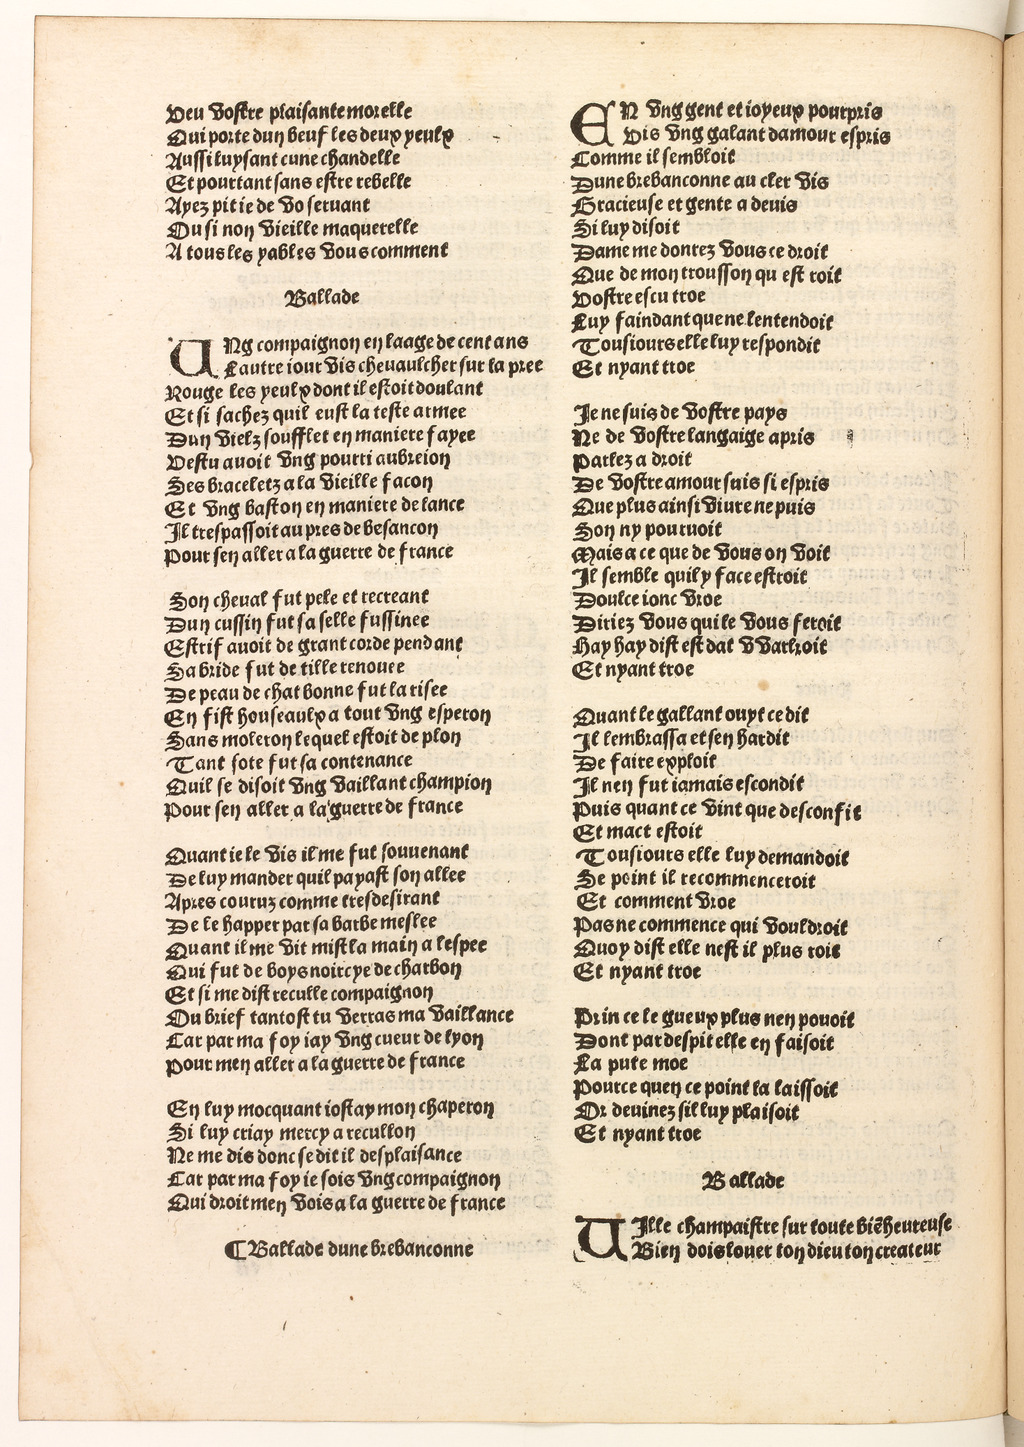 Veu vostre plaisante morelle
Qui porte dun beuf les deux yeulx
Aussi luysant cune chandelle
Et pourtant sans estre rebelle
Ayez pitie de vo seruant
Ou si non vieille maquerelle
A tous les yables vous comment
Ballade
UNg compaignon en laage de cent ans
Lautre iour vis cheuaulcher sur la pree
Rouge les yeulx dont il estoit doulant
Et si sachez quil eust la teste armee
Dun vielz soufflet en maniere fayee
Vestu auoit vng pourri aubreion
Ses braceletz a la vieille facon
Et vng baston en maniere de lance
Il trespassoit au pres de besancon
Pour sen aller a la guerre de france
Son cheual fut pele et recreant
Dun cussin fut sa selle fussinee
Estrif auoit de grant corde pendant
Sa bride fut de tille renouee
De peau de chat bonne fut la risee
En fist houseaulx a tout vng esperon
Sans moleron lequel estoit de plon
Tant sote fut sa contenance
Quil se disoit vng vaillant champion
Pour sen aller a la guerre de france
Quant ie le vis il me fut souuenant
De luy mander quil payast son allee
Apres couruz comme tresdesirant
De le happer par sa barbe meslee
Quant il me vit mist la main a lespee
Qui fut de boys noircye de charbon
Et si me dist reculle compaignon
Ou brief tantost tu verras ma vaillance
Car par ma foy iay vng cueur de lyon
Pour men aller a la guerre de france
En luy mocquant iostay mon chaperon
Si luy criay mercy a recullon
Ne me dis donc se dit il desplaisance
Car par ma foy ie sois vng compaignon
Qui droit men vois a la guerre de france
¶ Ballade dune brebanconne
EN vng gent et ioyeux pourpris
Vis vng galant damour espris
Comme il sembloit
Dune brebanconne au cler vis
Gracieuse et gente a deuis
Si luy disoit
Dame me donrez vous ce droit
Que de mon trousson qu est roit
Vostre escu troe
Luy faindant que ne lentendoit
Tousiours elle luy respondit
Et nyant troe
Je ne suis de vostre pays
Ne de vostre langaige apris
Parlez a droit
De vostre amour suis si espris
Que plus ainsi viure ne puis
Son ny pouruoit
Mais a ce que de vous on voit
Il semble quil y face estroit
Doulce ionc vroe
Diriez vous qui le vous feroit
Hay hay dist est dat VVarlroit
Et nyant troe
Quant le gallant ouyt ce dit
Il lembrassa et sen hardit
De faire exploit
Il nen fut iamais escondit
Puis quant ce vint que desconfit
Et mact estoit
Tousiours elle luy demandoit
Se point il recommenceroit
Et comment vroe
Pas ne commence qui vouldroit
Quoy dist elle nest il plus roit
Et nyant troe
Prin ce le gueux plus nen pouoit
Dont par despit elle en faisoit
La pute moe
Pource quen ce point la laissoit
Or deuinez sil luy plaisoit
Et nyant troe
Ballade
VIlle champaistre sur toute biẽheureuse
Bien dois louer ton dieu ton createur